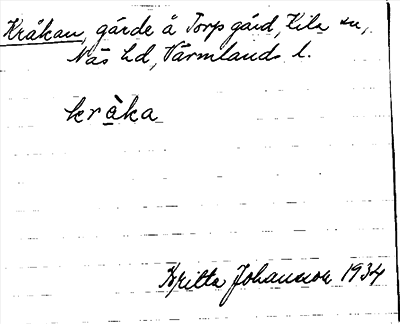 Kråkan, gärde å Torps gård, Kila sn,
Näs hd, Värmlands l.
kràka
Britta Johansson 1934